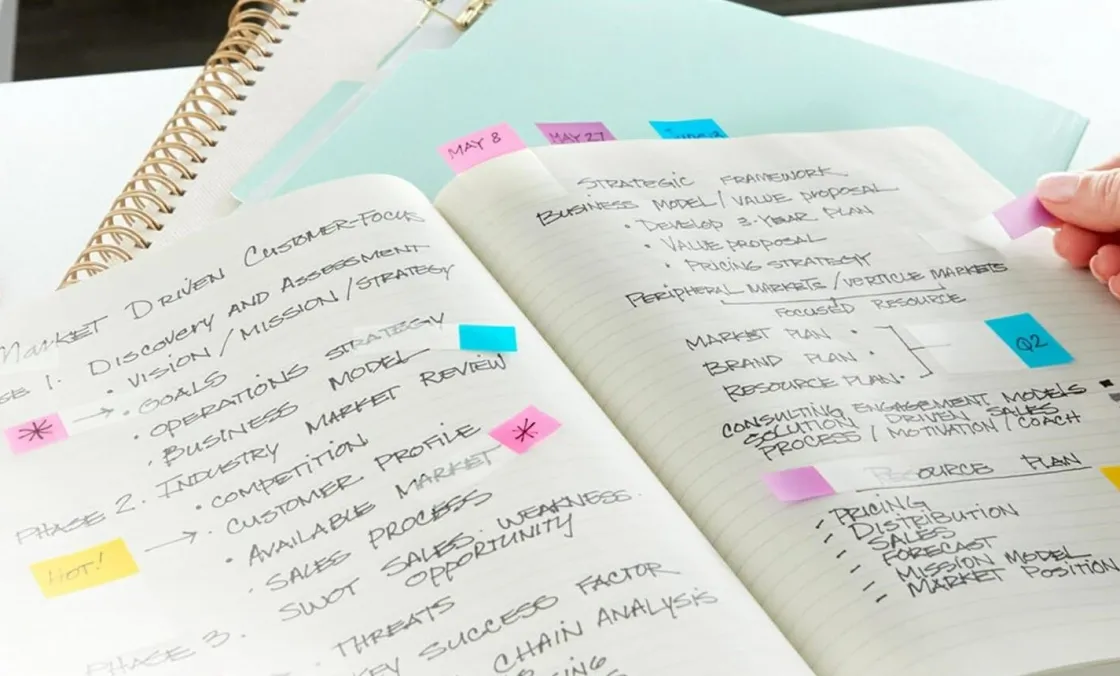 MAY 8
MAY 27
MARKET DRIVEN CUSTOMER-FOCUS
SE 1. DISCOVERY AND ASSESSMENT
• VISION / MISSION / STRATEGY
* → • GOALS
• OPERATIONS STRATEGY
• BUSINESS MODEL
PHASE 2. INDUSTRY MARKET REVIEW
• COMPETITION
*
HOT! → • CUSTOMER PROFILE
• AVAILABLE MARKET
• SALES PROCESS
SWOT SALES. WEAKNESS.
OPPORTUNITY
PHASE 3. • THREATS
KEY SUCCESS FACTOR
CHAIN ANALYSIS
STRATEGIC FRAMEWORK
BUSINESS MODEL / VALUE PROPOSAL
• DEVELOP 3-YEAR PLAN
• VALUE PROPOSAL
• PRICING STRATEGY
PERIPHERAL MARKETS / VERTICLE MARKETS
FOCUSED RESOURCE
MARKET PLAN •
BRAND PLAN •
RESOURCE PLAN •
Q2
CONSULTING ENGAGEMENT MODELS
SOLUTION DRIVEN SALES
PROCESS / MOTIVATION / COACH
RESOURCE PLAN
- PRICING
- DISTRIBUTION
- SALES
- FORECAST
- MISSION MODEL
- MARKET POSITION